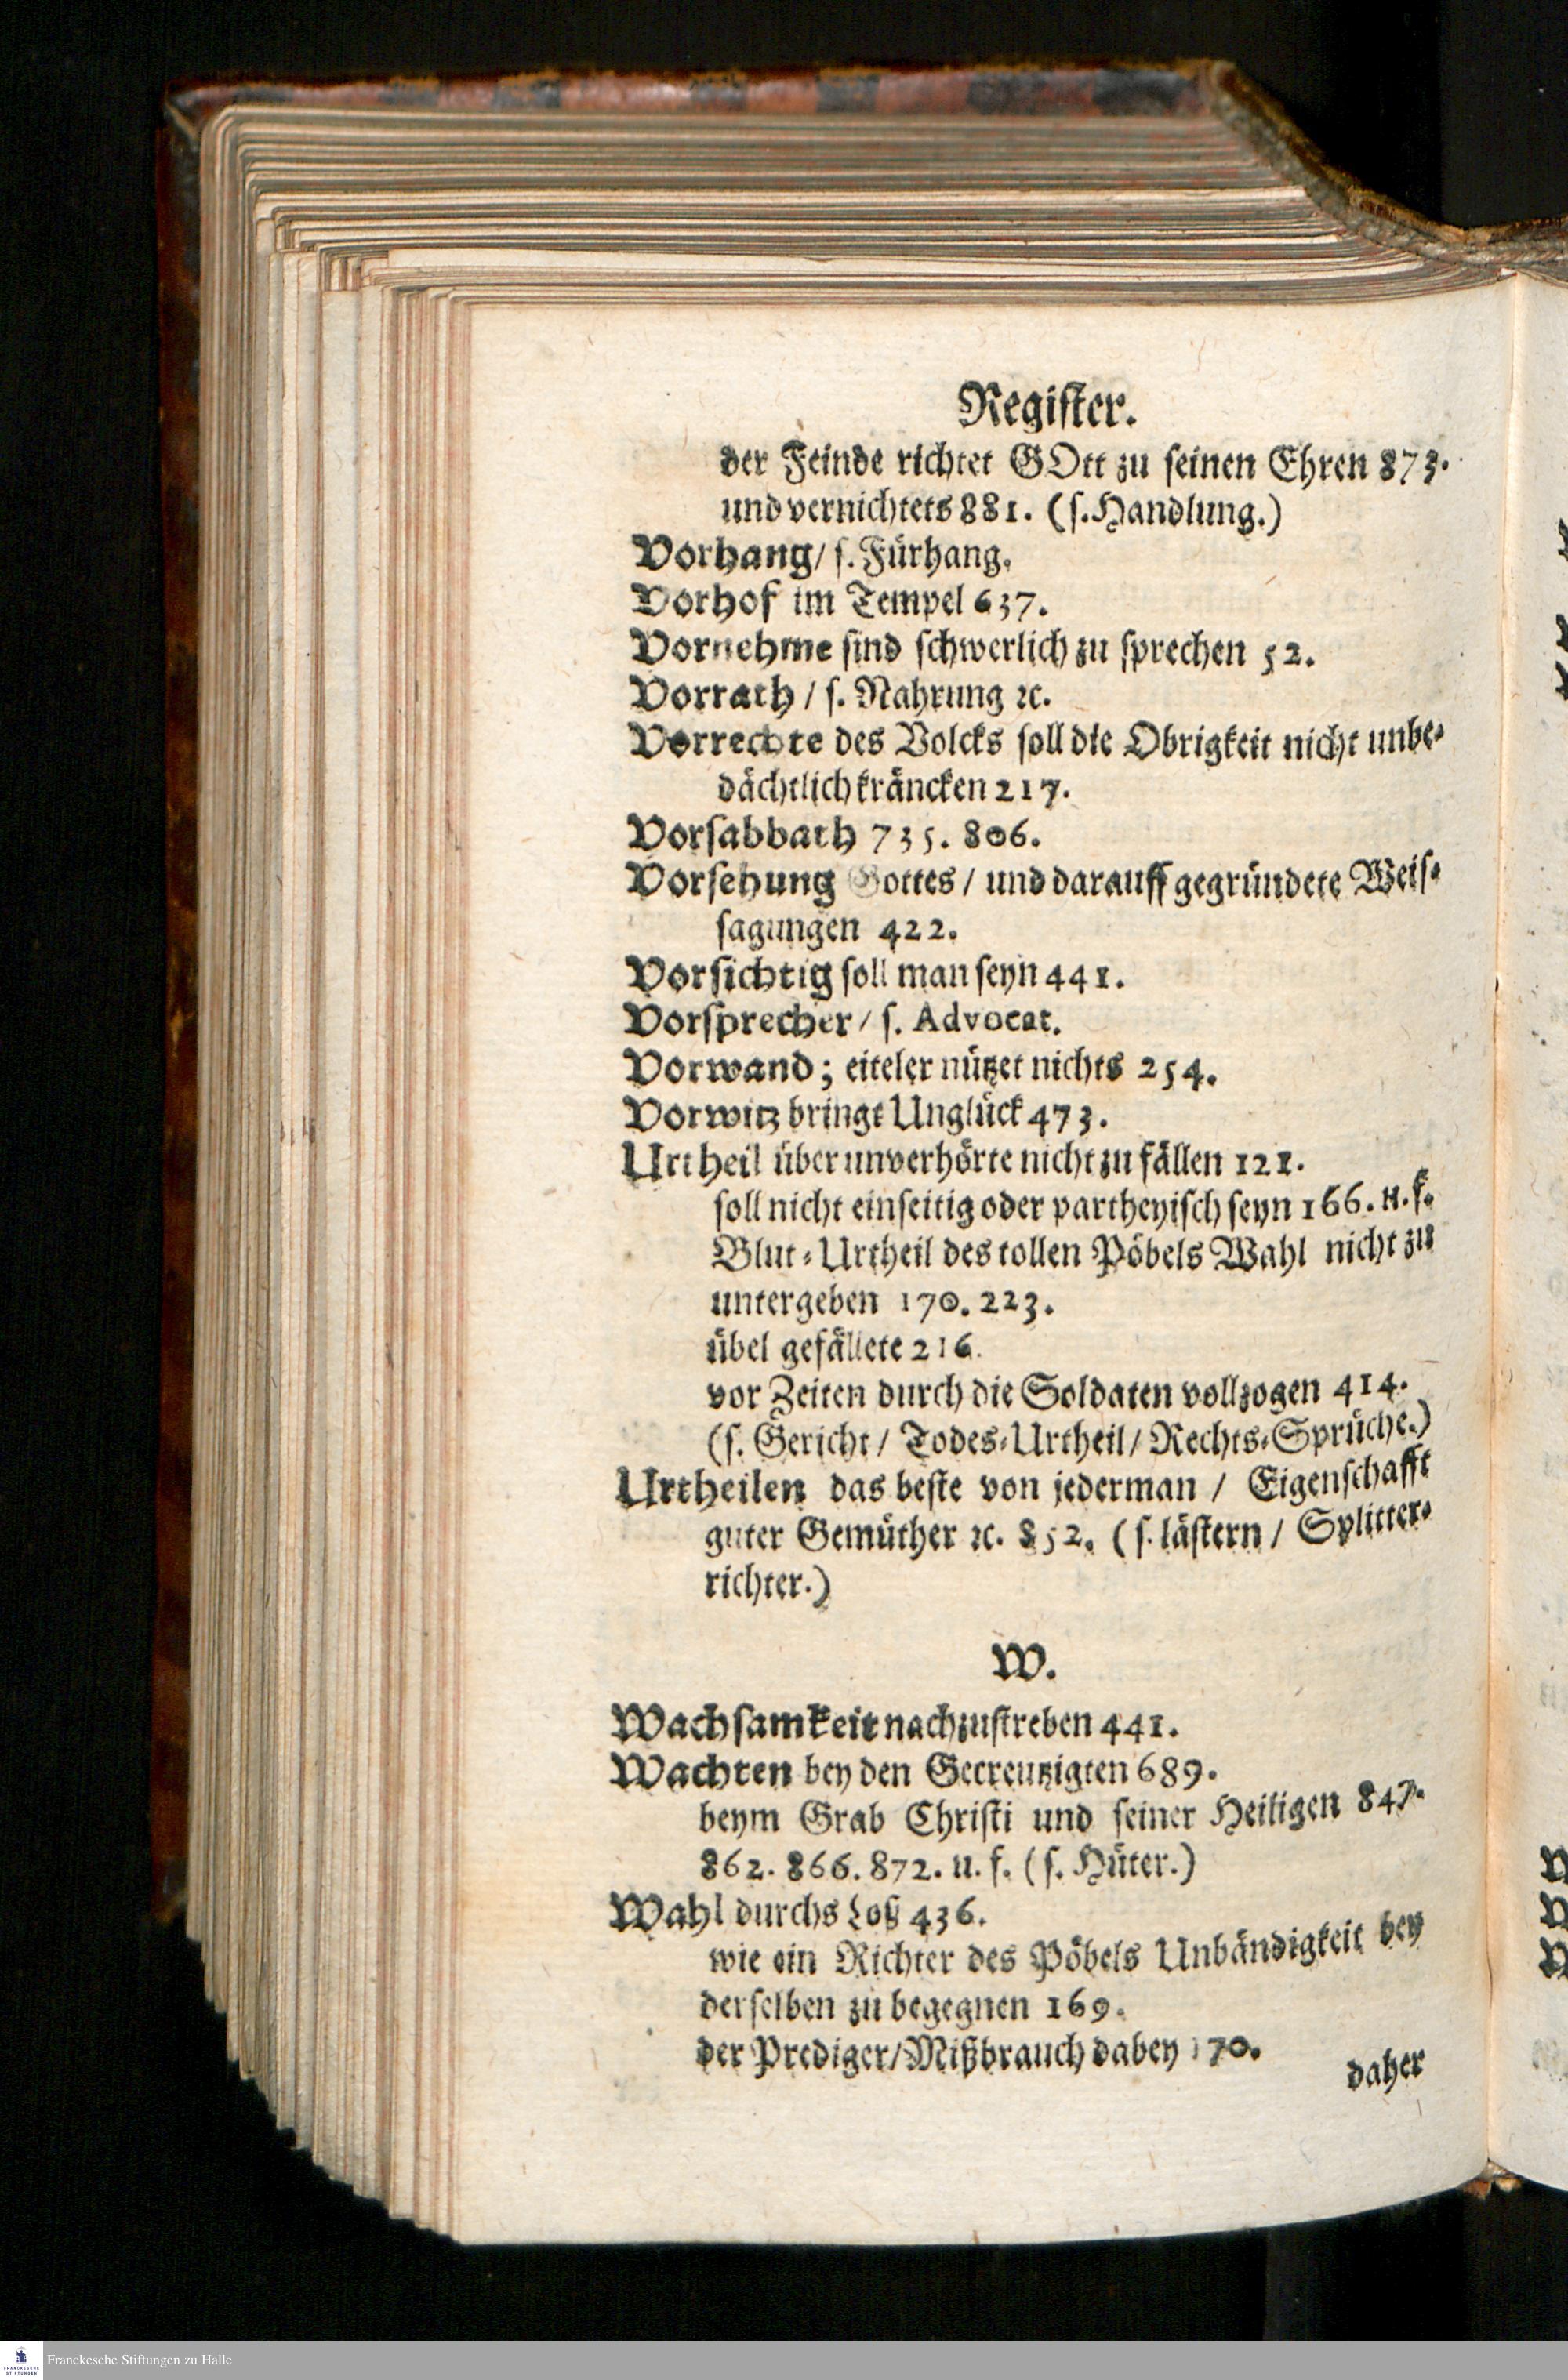 Register.
der Feinde richtet GOtt zu seinen Ehren 873.
und vernichtets 881. (s. Handlung.)
Vorhang/ s. Fürhang.
Vorhof im Tempel 637.
Vornehme sind schwerlich zu sprechen 52.
Vorrath / s. Nahrung ꝛc.
Vorrechte des Volcks soll die Obrigkeit nicht unbe-
dächtlich kräncken 217.
Vorsabbath 735. 806.
Vorsehung Gottes / und darauff gegründete Weis-
sagungen 422.
Vorsichtig soll man seyn 441.
Vorsprecher / s. Advocat.
Vorwand; eiteler nützet nichts 254.
Vorwitz bringt Unglück 473.
Urtheil über unverhörte nicht zu fällen 121.
soll nicht einseitig oder partheyisch seyn 166. u. f.
Blut-Urtheil des tollen Pöbels Wahl nicht zu
untergeben 170. 223.
übel gefällete 216.
vor Zeiten durch die Soldaten vollzogen 414.
(s. Gericht / Todes-Urtheil / Rechts-Sprüche.)
Urtheilen das beste von jederman / Eigenschafft
guter Gemüther ꝛc. 852. (s. lästern / Splitter-
richter.)
W.
Wachsamkeit nachzustreben 441.
Wachten bey den Gecreutzigten 689.
beym Grab Christi und seiner Heiligen 847.
862. 866. 872. u. f. (s. Hüter.)
Wahl durchs Loß 436.
wie ein Richter des Pöbels Unbändigkeit bey
derselben zu begegnen 169.
der Prediger / Mißbrauch dabey 170.
daher
FRANCKESCHE STIFTUNGEN
Franckesche Stiftungen zu Halle